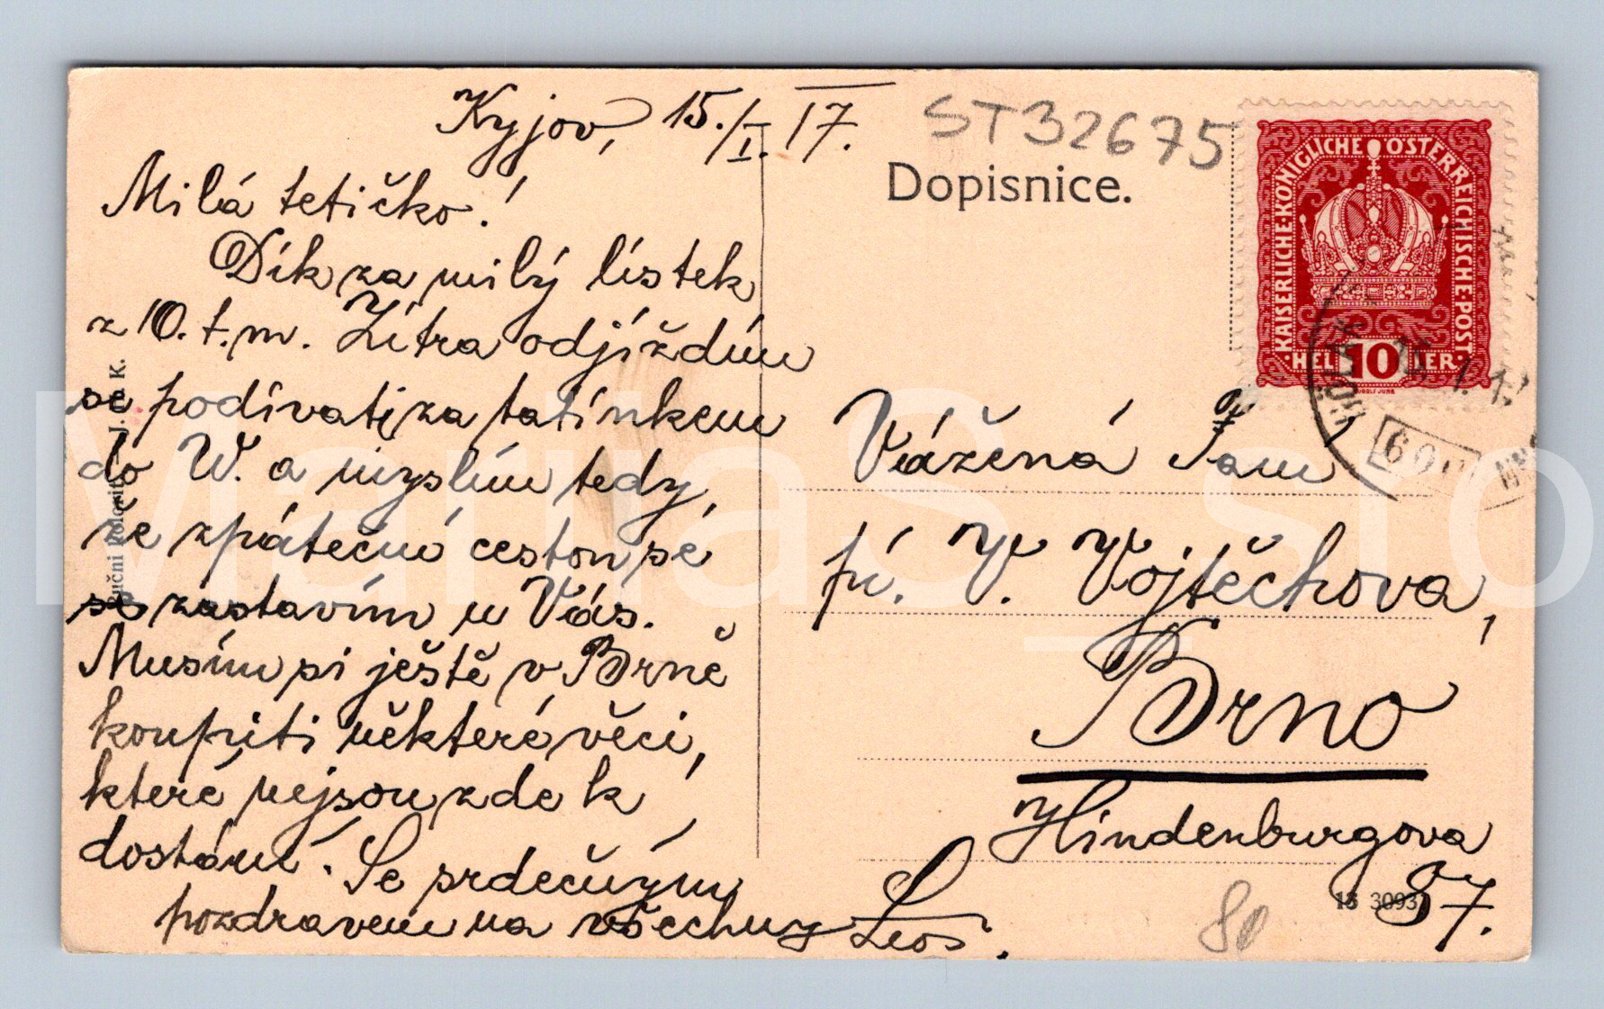 Kyjov, 15./I. 17.
ST32675
Dopisnice.
KAISERLICHE·KÖNIGLICHE ÖSTERREICHISCHE·POST·
HELLER 10 HELLER
Milá tetičko!
Dík za milý lístek
z 10. t. m. Zítra odjíždím
se podívati za tatínkem
do W. a myslím tedy,
že zpáteční cestou se
se zastavím u Vás.
Musím si ještě v Brně
koupiti některé věci,
které nejsou zde k
dostání. Se srdečným
pozdravem na všechny Leoš.
Vážená Paní
pí. V. Vojtěchova,
Brno
Hindenburgova
57.
15 3093
80
Ruční kolorit – J. K.